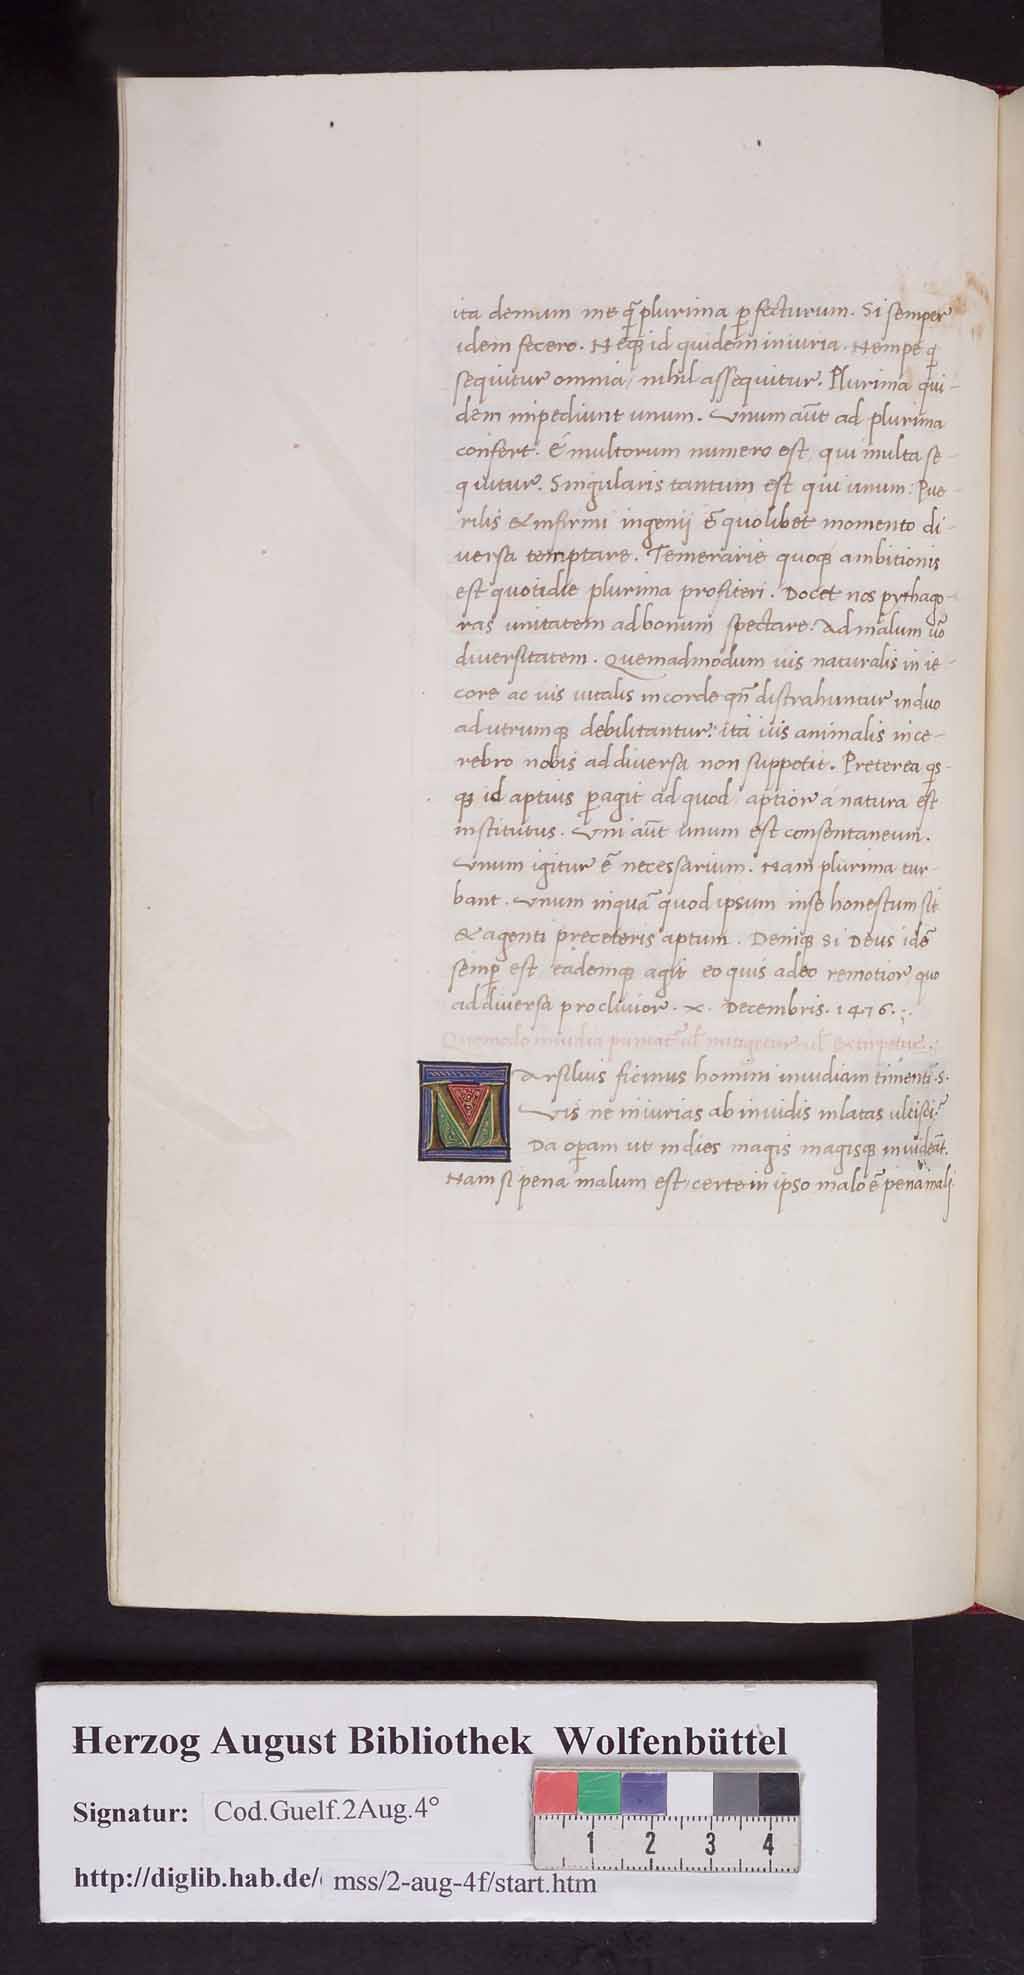 ita demum me q̃plurima ꝑfecturum. Si semper
idem fecero. Neqꝫ id quidem iniuria. Nempe q̇
sequitur omnia / nihil assequitur. Plurima qui-
dem impediunt unum. Vnum aũt ad plurima
confert. E multorum numero est, qui multa se-
quitur. Singularis tantum est qui unum: Pue-
rilis & infirmi ingenij ẽ quolibet momento di-
uersa temptare. Temerarie quoqꝫ ambitionis
est quotidie plurima profiteri. Docet nos pythago-
ras unitatem ad bonum spectare. Ad malum uõ
diuersitatem. Quemadmodum uis naturalis in ie-
core ac uis uitalis in corde qñ distrahuntur in duo
ad utrumqꝫ debilitantur: ita uis animalis in ce-
rebro nobis ad diuersa non suppetit. Preterea qs-
qꝫ id aptius ꝑagit ad quod aptior a natura est
institutus. Vni aũt unum est consentaneum.
Vnum igitur ẽ necessarium. Nam plurima tur-
bant. Vnum inquã quod ipsum in se honestum sit
& agenti preceteris aptum. Deniqꝫ si Deus idẽ
semꝑ est eademqꝫ agit eo quis adeo remotior quo
ad diuersa procliuior. X. Decembris. 1476.
Quomodo inuidia puniatr̃ ul̃ mitigetur ul̃ extirpetur.
Marsilius ficinus homini inuidiam timenti .s.
Vis ne iniurias ab inuidis inlatas ulcisci?
Da oꝑam ut indies magis magisqꝫ inuideãt.
Nam si pena malum est, certe in ipso malo ẽ pena mali
Herzog August Bibliothek Wolfenbüttel
Signatur: Cod.Guelf.2Aug.4°
http://diglib.hab.de/ mss/2-aug-4f/start.htm
1 2 3 4